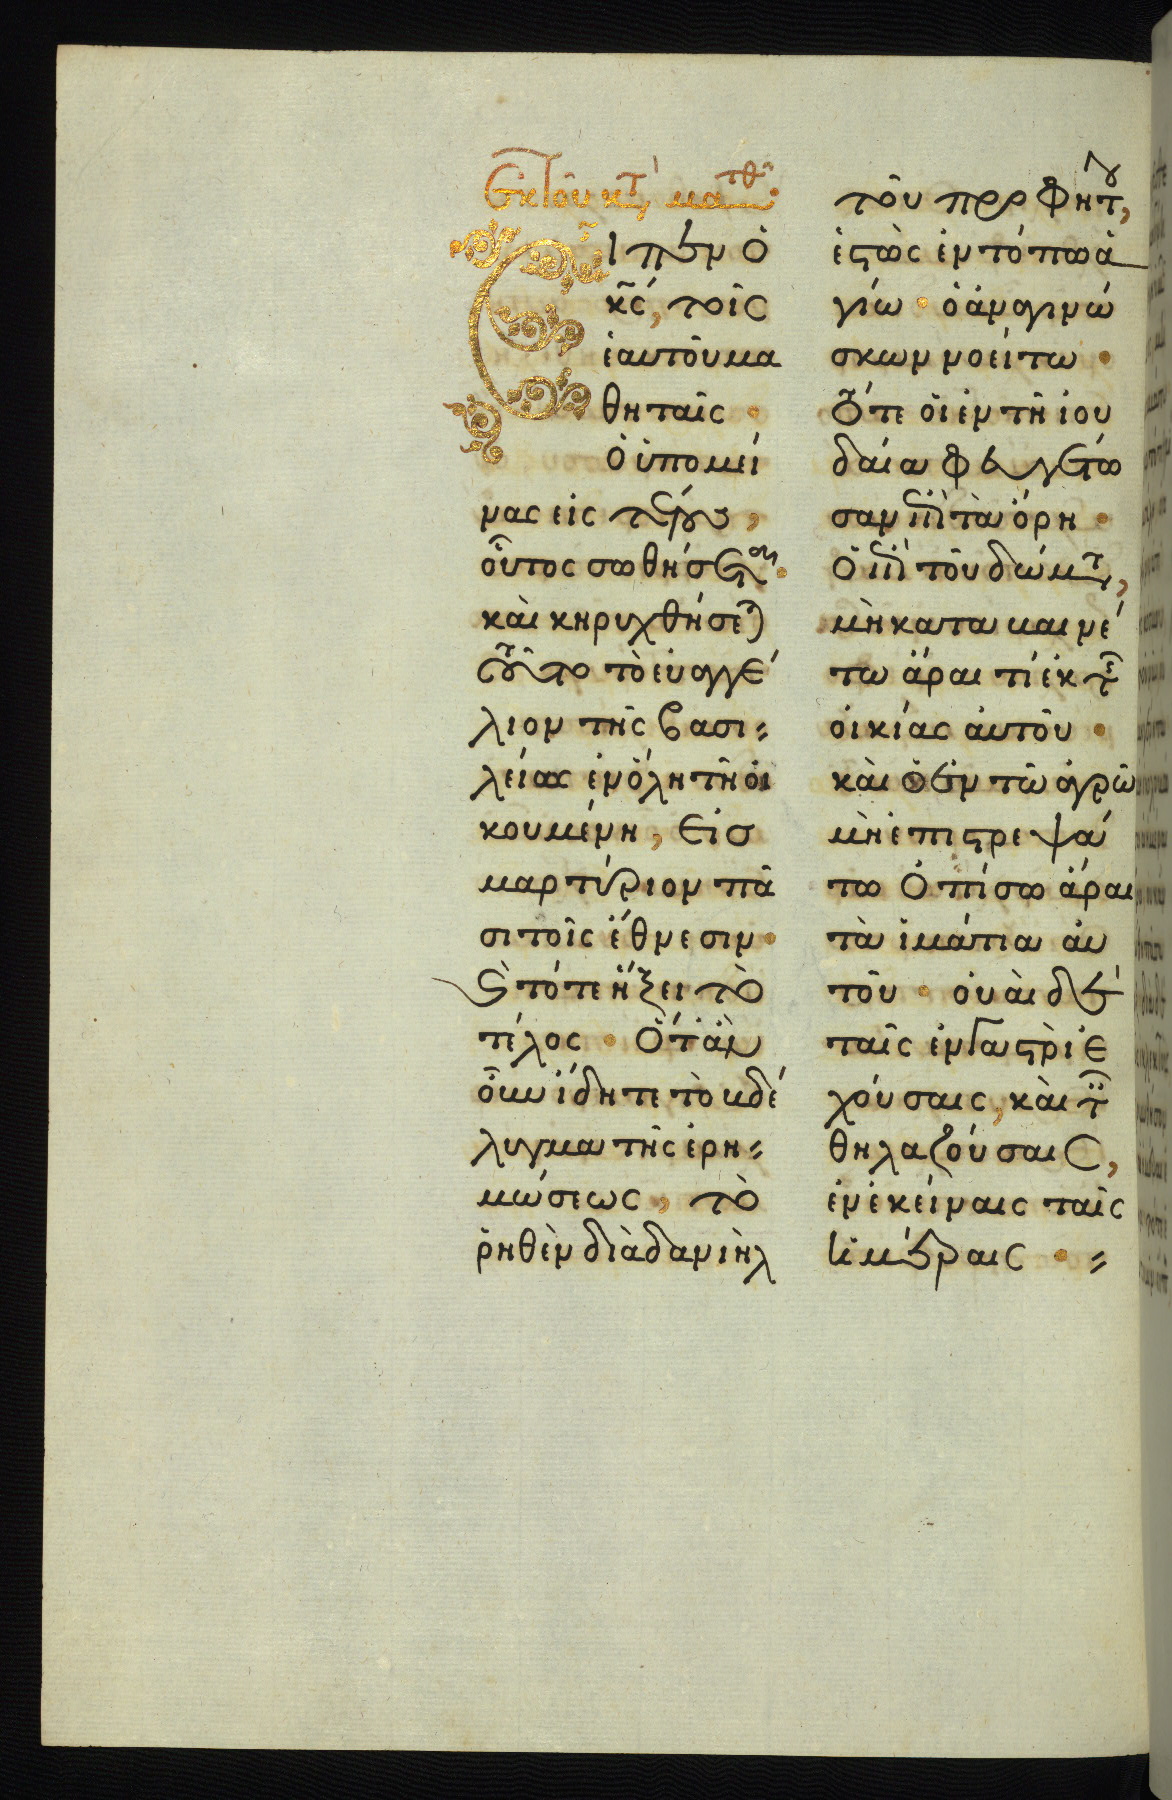 Ἐκ τοῦ κτ μα τθ
Εἶπεν ὁ
κς, τοῖς
ἑαυτοῦ μα
θηταῖς·
Ὁ ὑπομεί
νας εἰς τέλος,
οὗτος σωθήσεται·
καὶ κηρυχθήσεται
τοῦτο τὸ εὐαγγέ
λιον τῆς βασι=
λείας ἐν ὅλη τῆ οἰ
κουμένη, εἰσ
μαρτύριον πᾶ
σι τοῖς ἔθνεσιν·
καὶ τότε ἥξει τὸ
τέλος· Ὅταν
οὖν ἴδητε τὸ βδέ
λυγμα τῆς ἐρη=
μώσεως, τὸ
ῥηθὲν διὰ δανιὴλ
τοῦ προφήτου,
ἑστὼς ἐν τόπω ἁ
γίω· ὁ ἀναγινώ
σκων νοείτω·
Τότε οἱ ἐν τῆ ἰου
δαία φευγέτω
σαν ἐπὶ τὰ ὄρη·
Ὁ ἐπὶ τοῦ δώματος,
μὴ καταβαινέ
τω ἆραι τί ἐκ τῆς
οἰκίας αὐτοῦ·
καὶ ὁ ἐν τῶ ἀγρῶ
μὴ ἐπιστρεψά
τω ὀπίσω ἆραι
τὰ ἱμάτια αὐ
τοῦ· οὐαὶ δὲ
ταῖς ἐν γαστρὶ ἐ
χούσαις, καὶ ταῖς
θηλαζούσαις,
ἐν ἐκείναις ταῖς
ἡμέραις· =